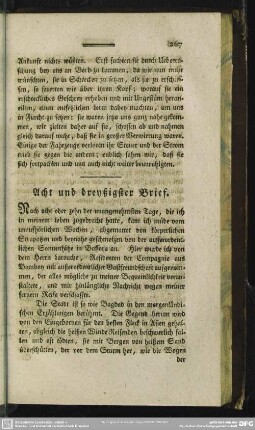 267
Ankunft nichts wüßten. Erst suchten sie durch Ueberra-
schung bey uns an Bord zu kommen, da wir nun mißt
wünschten, sie in Schrecken zu setzen, als sie zu erschießen,
so feuerten wir über ihren Kopf; worauf sie ein
erschreckliches Geschrey erhoben und mit Ungestüm heran-
eilten, einen entschlossenen dabey machten, um uns
in Furcht zu setzen; sie waren jezt uns ganz nahe gekom-
men, wir zielten daher auf sie, schossen ab und nahmen
gleich darauf wahr, daß sie in großer Verwirrung waren.
Einige der Fahrzeuge verloren ihr Steuer und der Strom
trieb sie gegen die andern; endlich sahen wir, daß sie
sich fortpackten und uns auch nicht weiter beunruhigten.
Acht und dreyßigster Brief.
Nach acht oder zehn der unangenehmsten Tage, die ich
in meinem Leben zugebracht hatte, kam ich müde vom
unaufhörlichen Wachen, abgemattet von körperlichen
Strapazen und beynahe geschmolzen von der außerordent-
lichen Sonnenhitze in Bassora an. Hier wurde ich von
dem Herrn Latouche, Residenten der Compagnie aus
Bombay mit außerordentlicher Gastfreundschaft aufgenom-
men, der alles mögliche zu meiner Bequemlichkeit veran-
staltete, und mir hinlängliche Nachricht wegen meiner
fernern Reise verschaffte.
Die Stadt ist so wie Bagdad in den morgenländi-
schen Erzählungen berühmt. Die Gegend herum wird
von den Eingebornen für den besten Fleck in Asien gehal-
ten, obgleich die heißen Winde Reisenden beschwerlich fal-
len und oft tödten, sie mit Bergen von heißem Sand
überschütten, der vor dem Sturm her, wie die Wogen
der